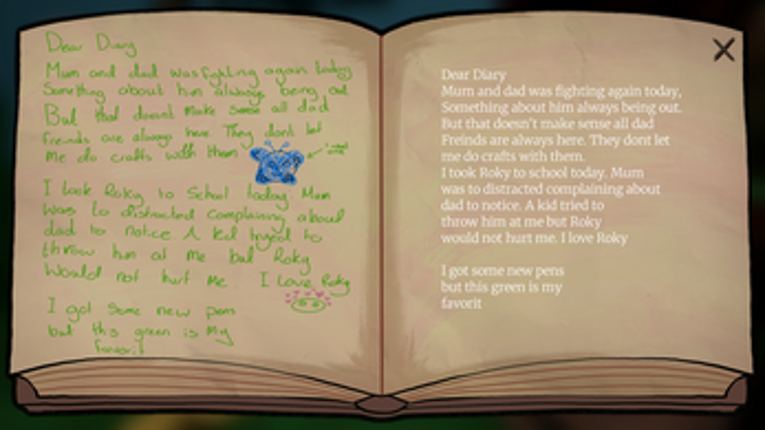 Dear Diary
Mum and dad was fighting again today
Something about him always being out
But that doesnt make sense all dad
freinds are always here. They dont let
me do crafts with them
I took Roky to School today. Mum
was to distracted complaining about
dad to notice A kid tryed to
throw him at me but Roky
would not hurt me I love Roky
I got some new pens
but this green is my
favorit
Dear Diary
Mum and dad was fighting again today,
Something about him always being out.
But that doesn't make sense all dad
Freinds are always here. They dont let
me do crafts with them.
I took Roky to school today. Mum
was to distracted complaining about
dad to notice. A kid tried to
throw him at me but Roky
would not hurt me. I love Roky
I got some new pens
but this green is my
favorit